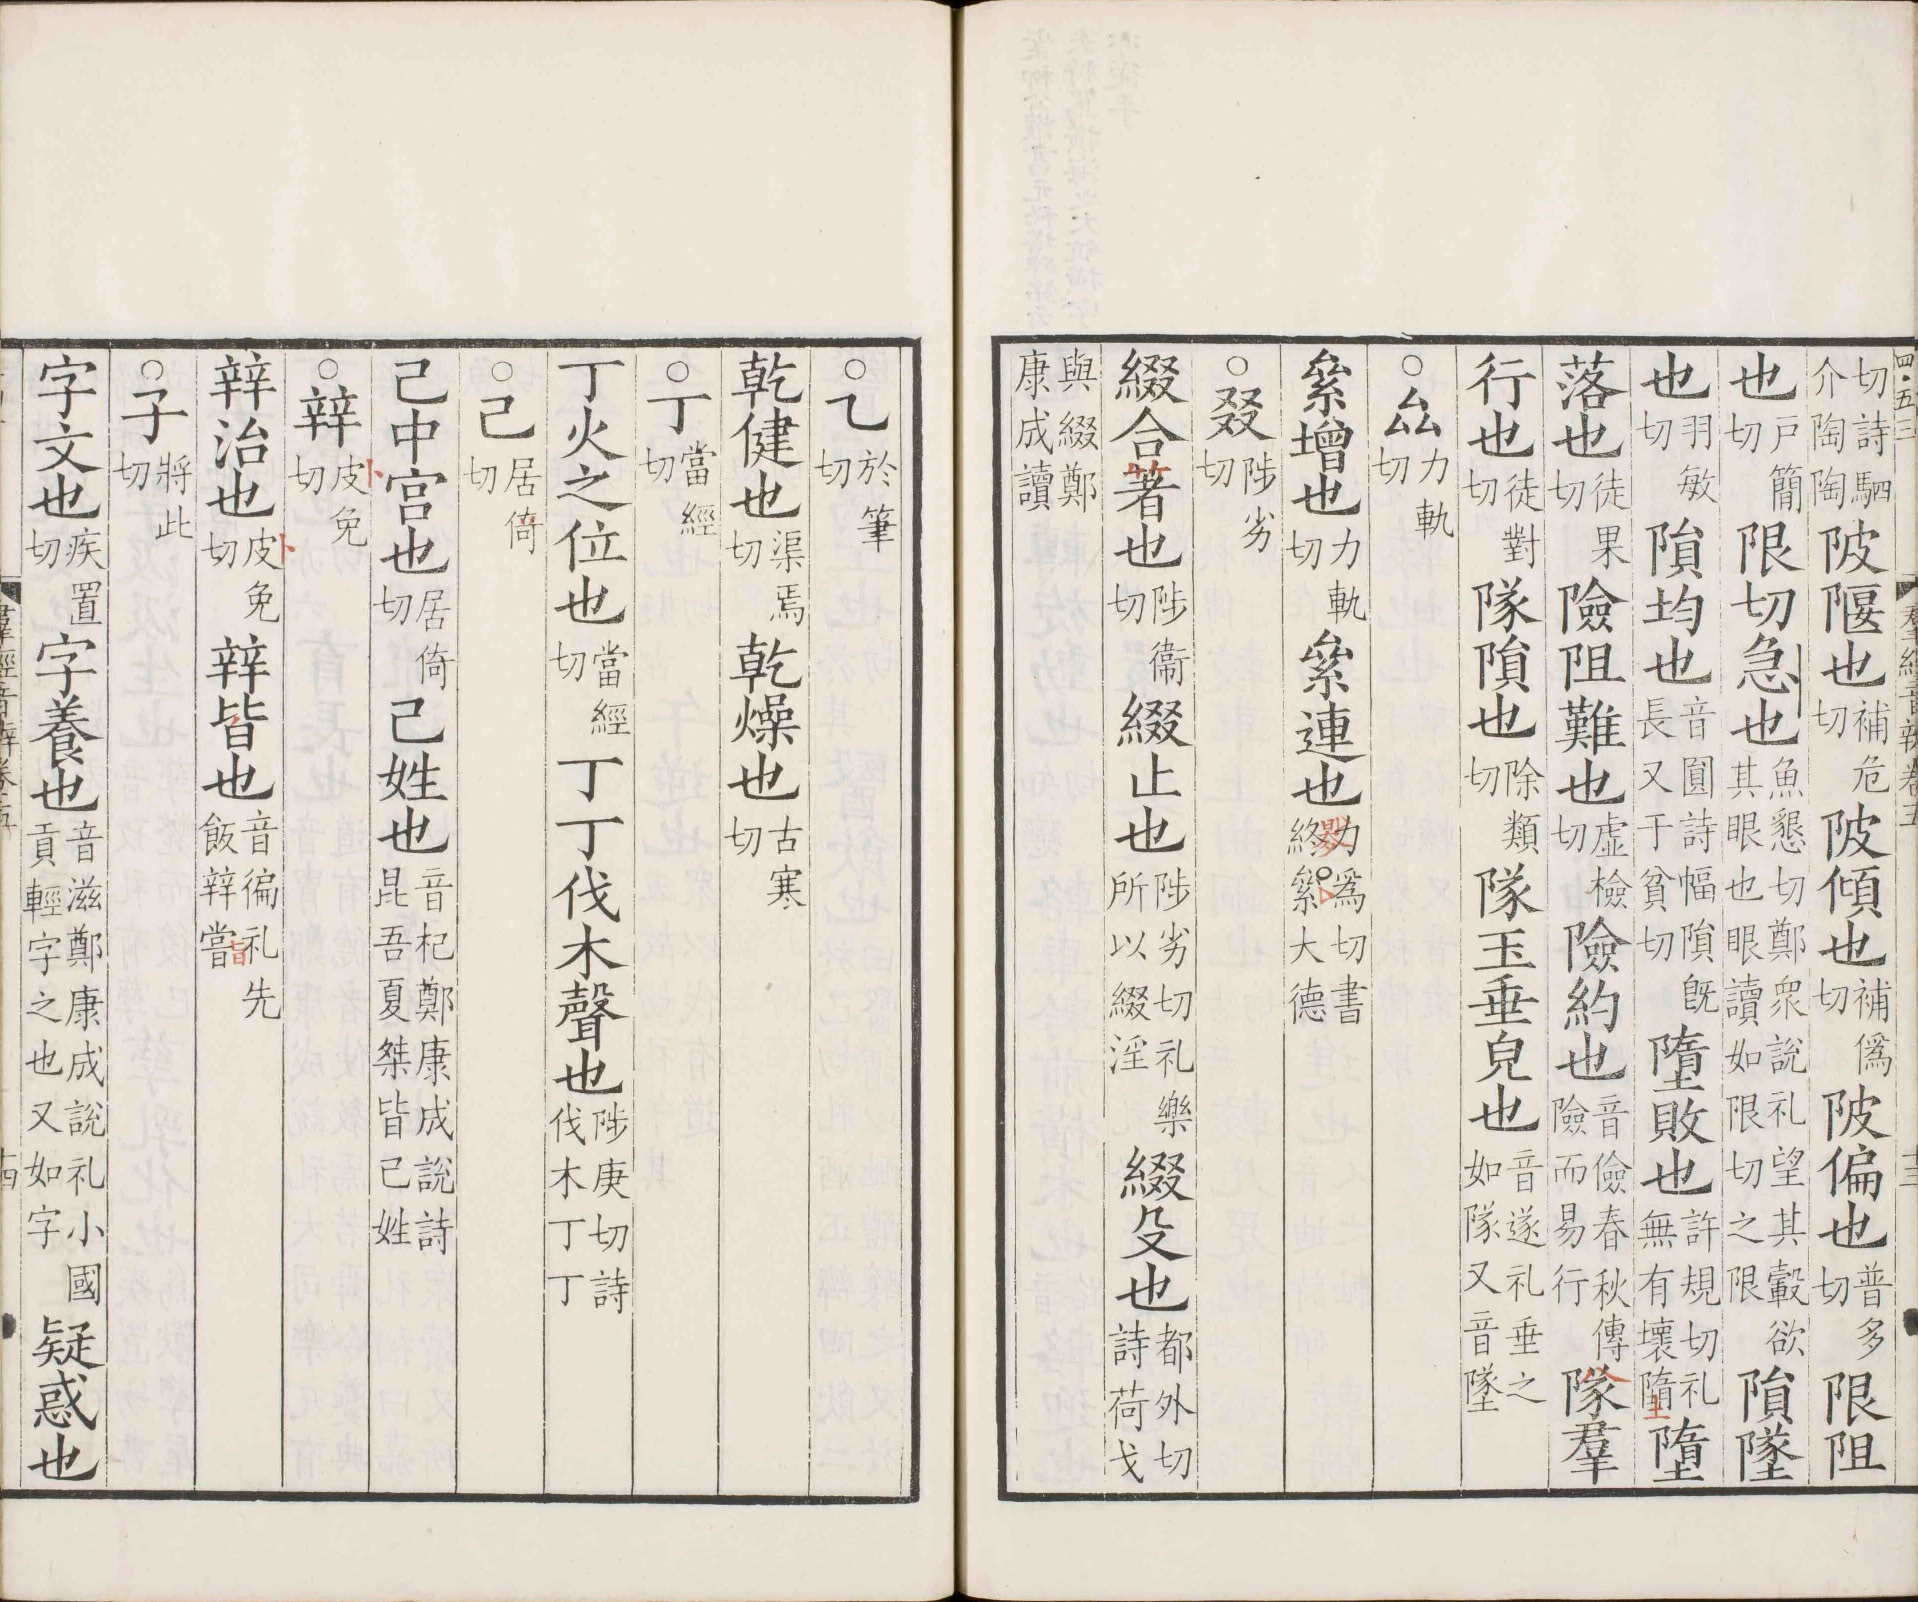 切詩駟介陶陶陂隁也補危切陂傾也補僞切陂偏也普多切限阻
也戶簡切限切急也魚懇切鄭眾說礼望其轂欲其眼也眼讀如限切之限隕墜
也羽敏切隕均也音圓詩幅隕旣長又于貧切墮敗也許規切礼無有壞墮墮
落也徒果切險阻難也虛檢切險約也音儉春秋傳險而易行隊羣
行也徒對切隊隕也除類切隊玉垂皃也音遂礼垂之如隊又音墜
○厽力軌切
絫增也力軌切絫連也力爲切書終絫大德
○叕陟劣切
綴合著也陟衞切綴止也陟劣切礼樂所以綴淫綴殳也都外切詩荷戈
與綴鄭康成讀
○乙於筆切
乾健也渠焉切乾燥也古寒切
○丁當經切
丁火之位也當經切丁丁伐木聲也陟庚切詩伐木丁丁
○己居倚切
己中宮也居倚切己姓也音杞鄭康成說詩昆吾夏桀皆己姓
○辡皮免切
辡治也皮免切辡皆也音徧礼先飯辡嘗
○子將此切
字文也疾置切字養也音滋鄭康成說礼小國貢輕字之也又如字疑惑也
羣經音辨卷五
十三
羣經音辨卷五
十四